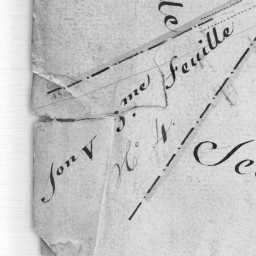 le
5.me Feuille
N.° 4.
Son V
Se